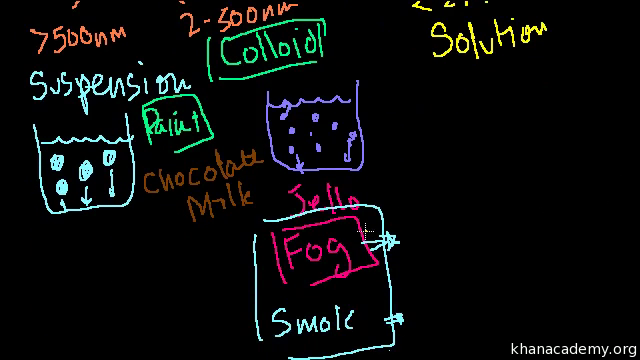 >500nm
2-500nm
Colloid
Solution
Suspension
Paint
Chocolate
Milk
Jello
Fog
Smok
khanacademy.org